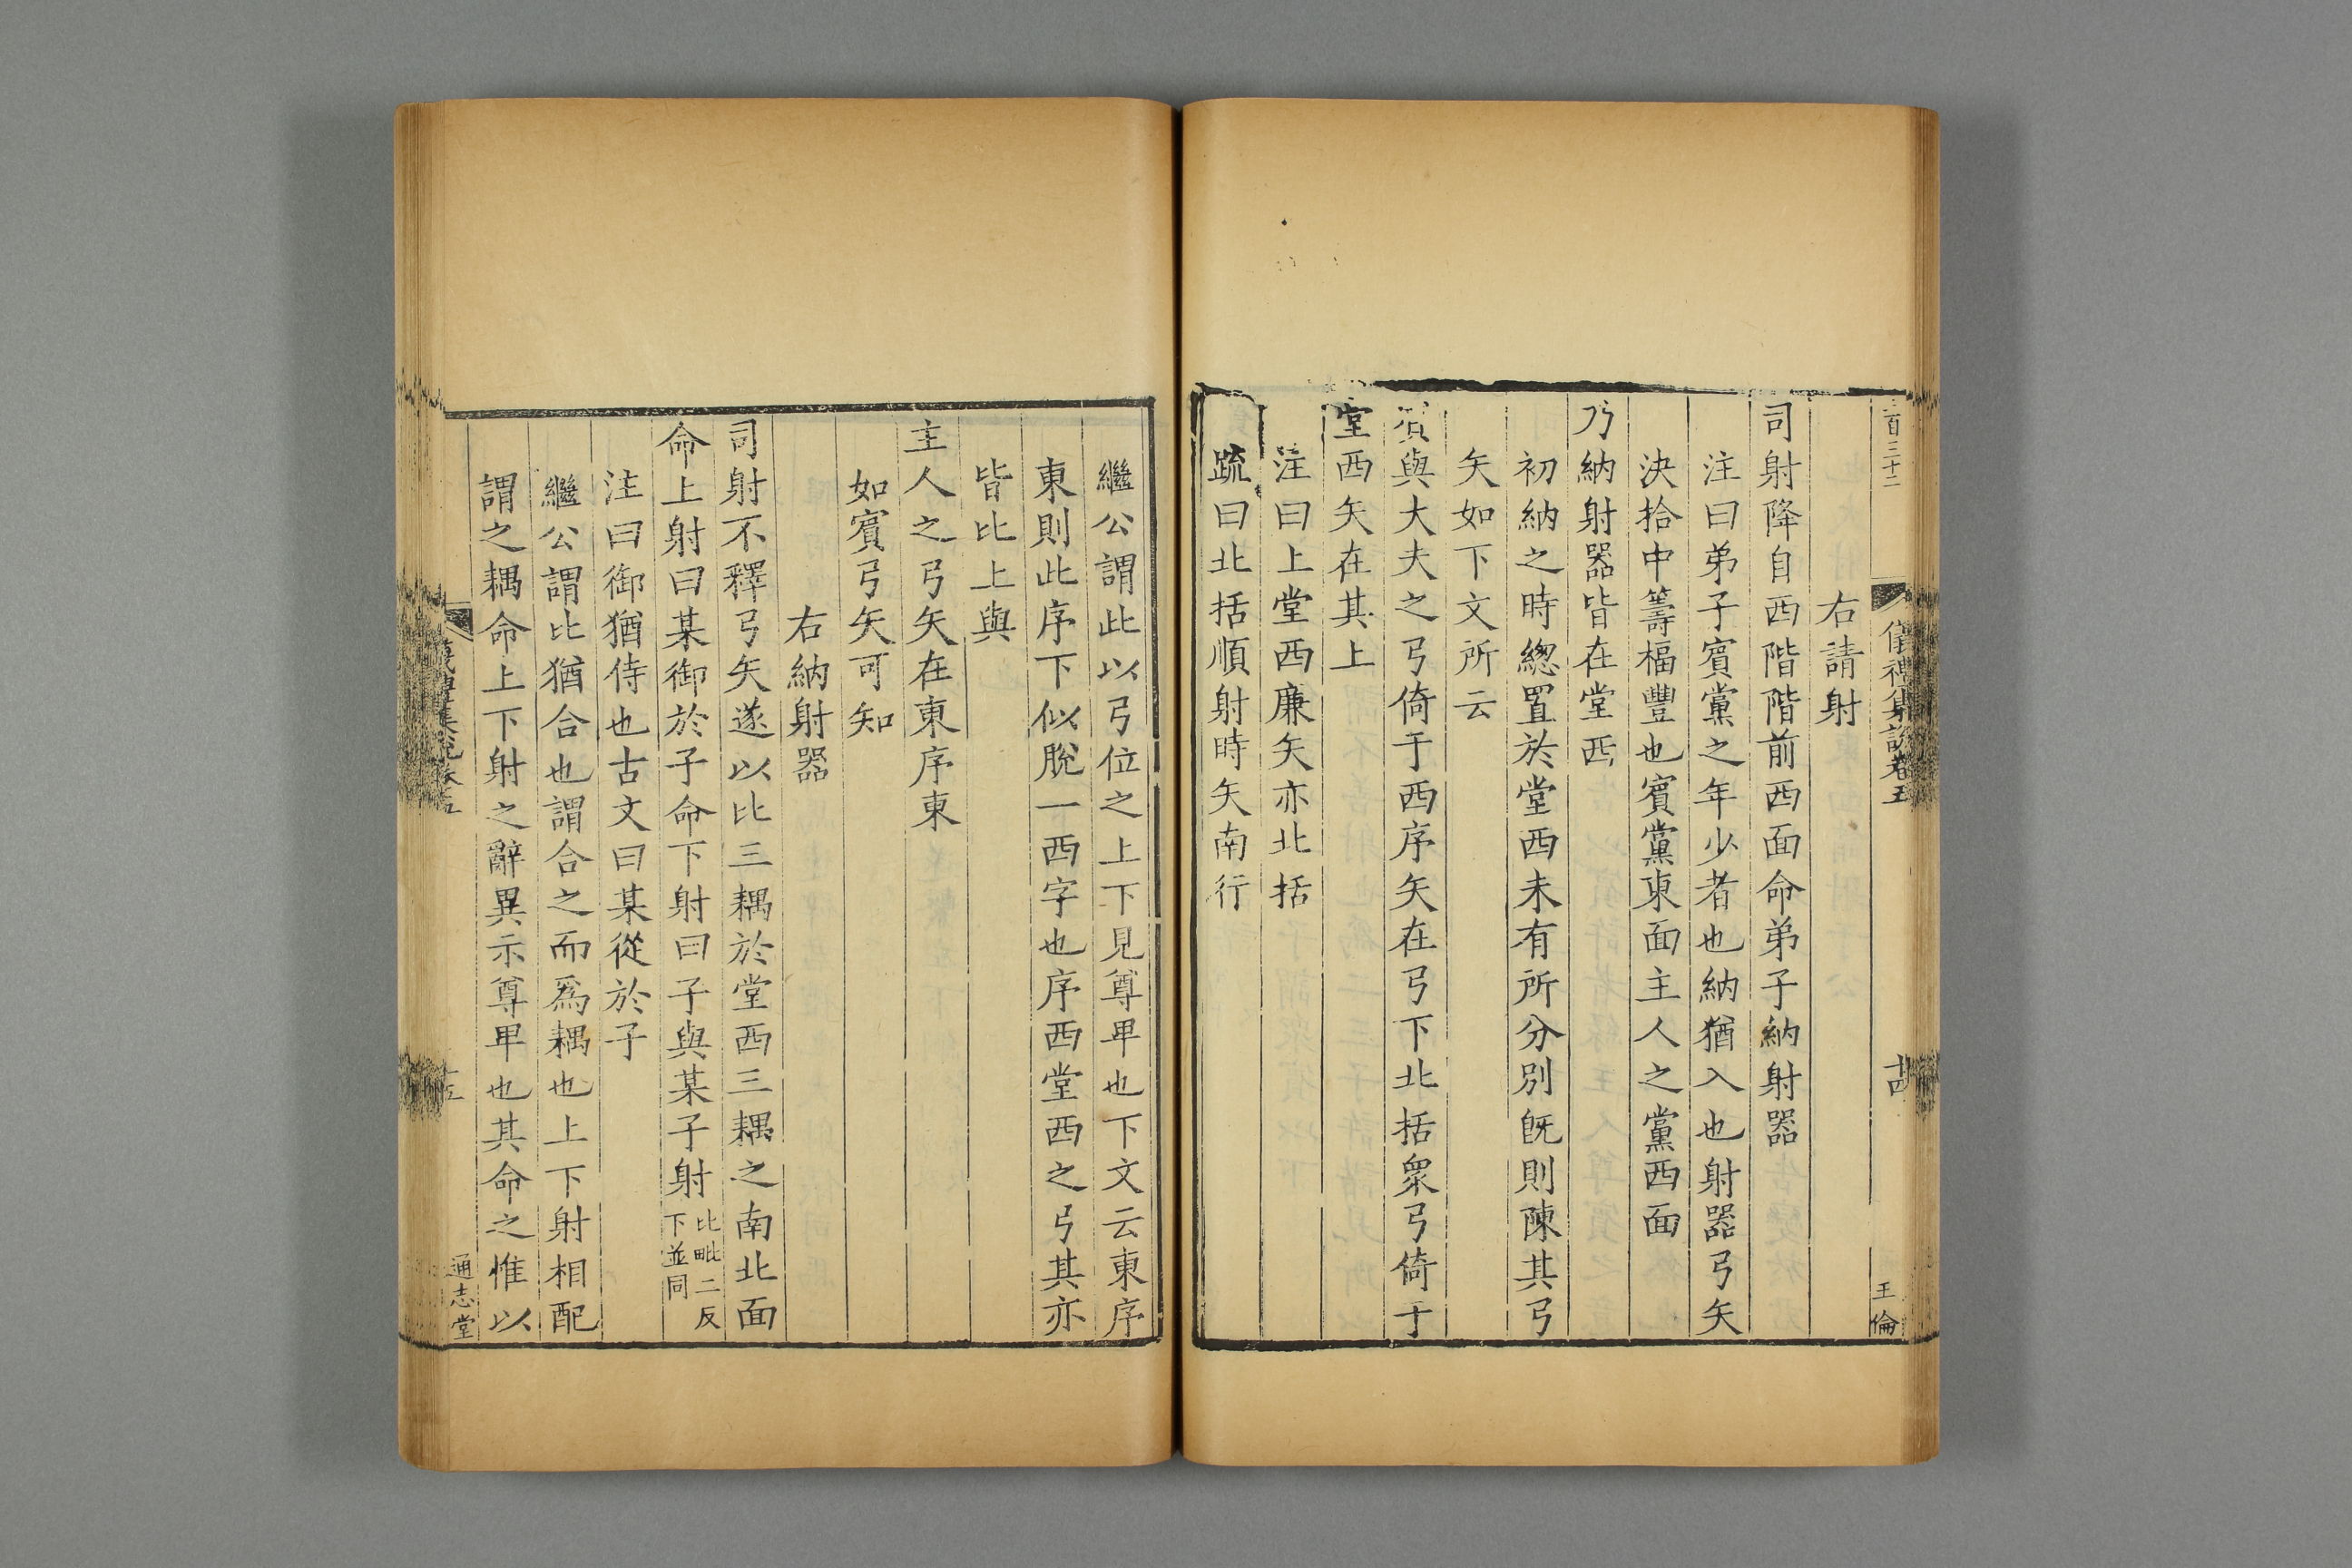 百三十二
儀禮集說卷五
十四
王倫
右請射
司射降自西階階前西面命弟子納射器
注曰弟子賓黨之年少者也納猶入也射器弓矢
決拾中籌楅豐也賓黨東面主人之黨西面
乃納射器皆在堂西
初納之時緫置於堂西未有所分別旣則陳其弓
矢如下文所云
賓與大夫之弓倚于西序矢在弓下北括衆弓倚于
堂西矢在其上
注曰上堂西廉矢亦北括
疏曰北括順射時矢南行
繼公謂此以弓位之上下見尊卑也下文云東序
東則此序下似脫一西字也序西堂西之弓其亦
皆比上與
主人之弓矢在東序東
如賓弓矢可知
右納射器
司射不釋弓矢遂以比三耦於堂西三耦之南北面
命上射曰某御於子命下射曰子與某子射比毗二反下並同
注曰御猶侍也古文曰某從於子
繼公謂比猶合也謂合之而爲耦也上下射相配
謂之耦命上下射之辭異示尊卑也其命之惟以
儀禮集說卷五
通志堂